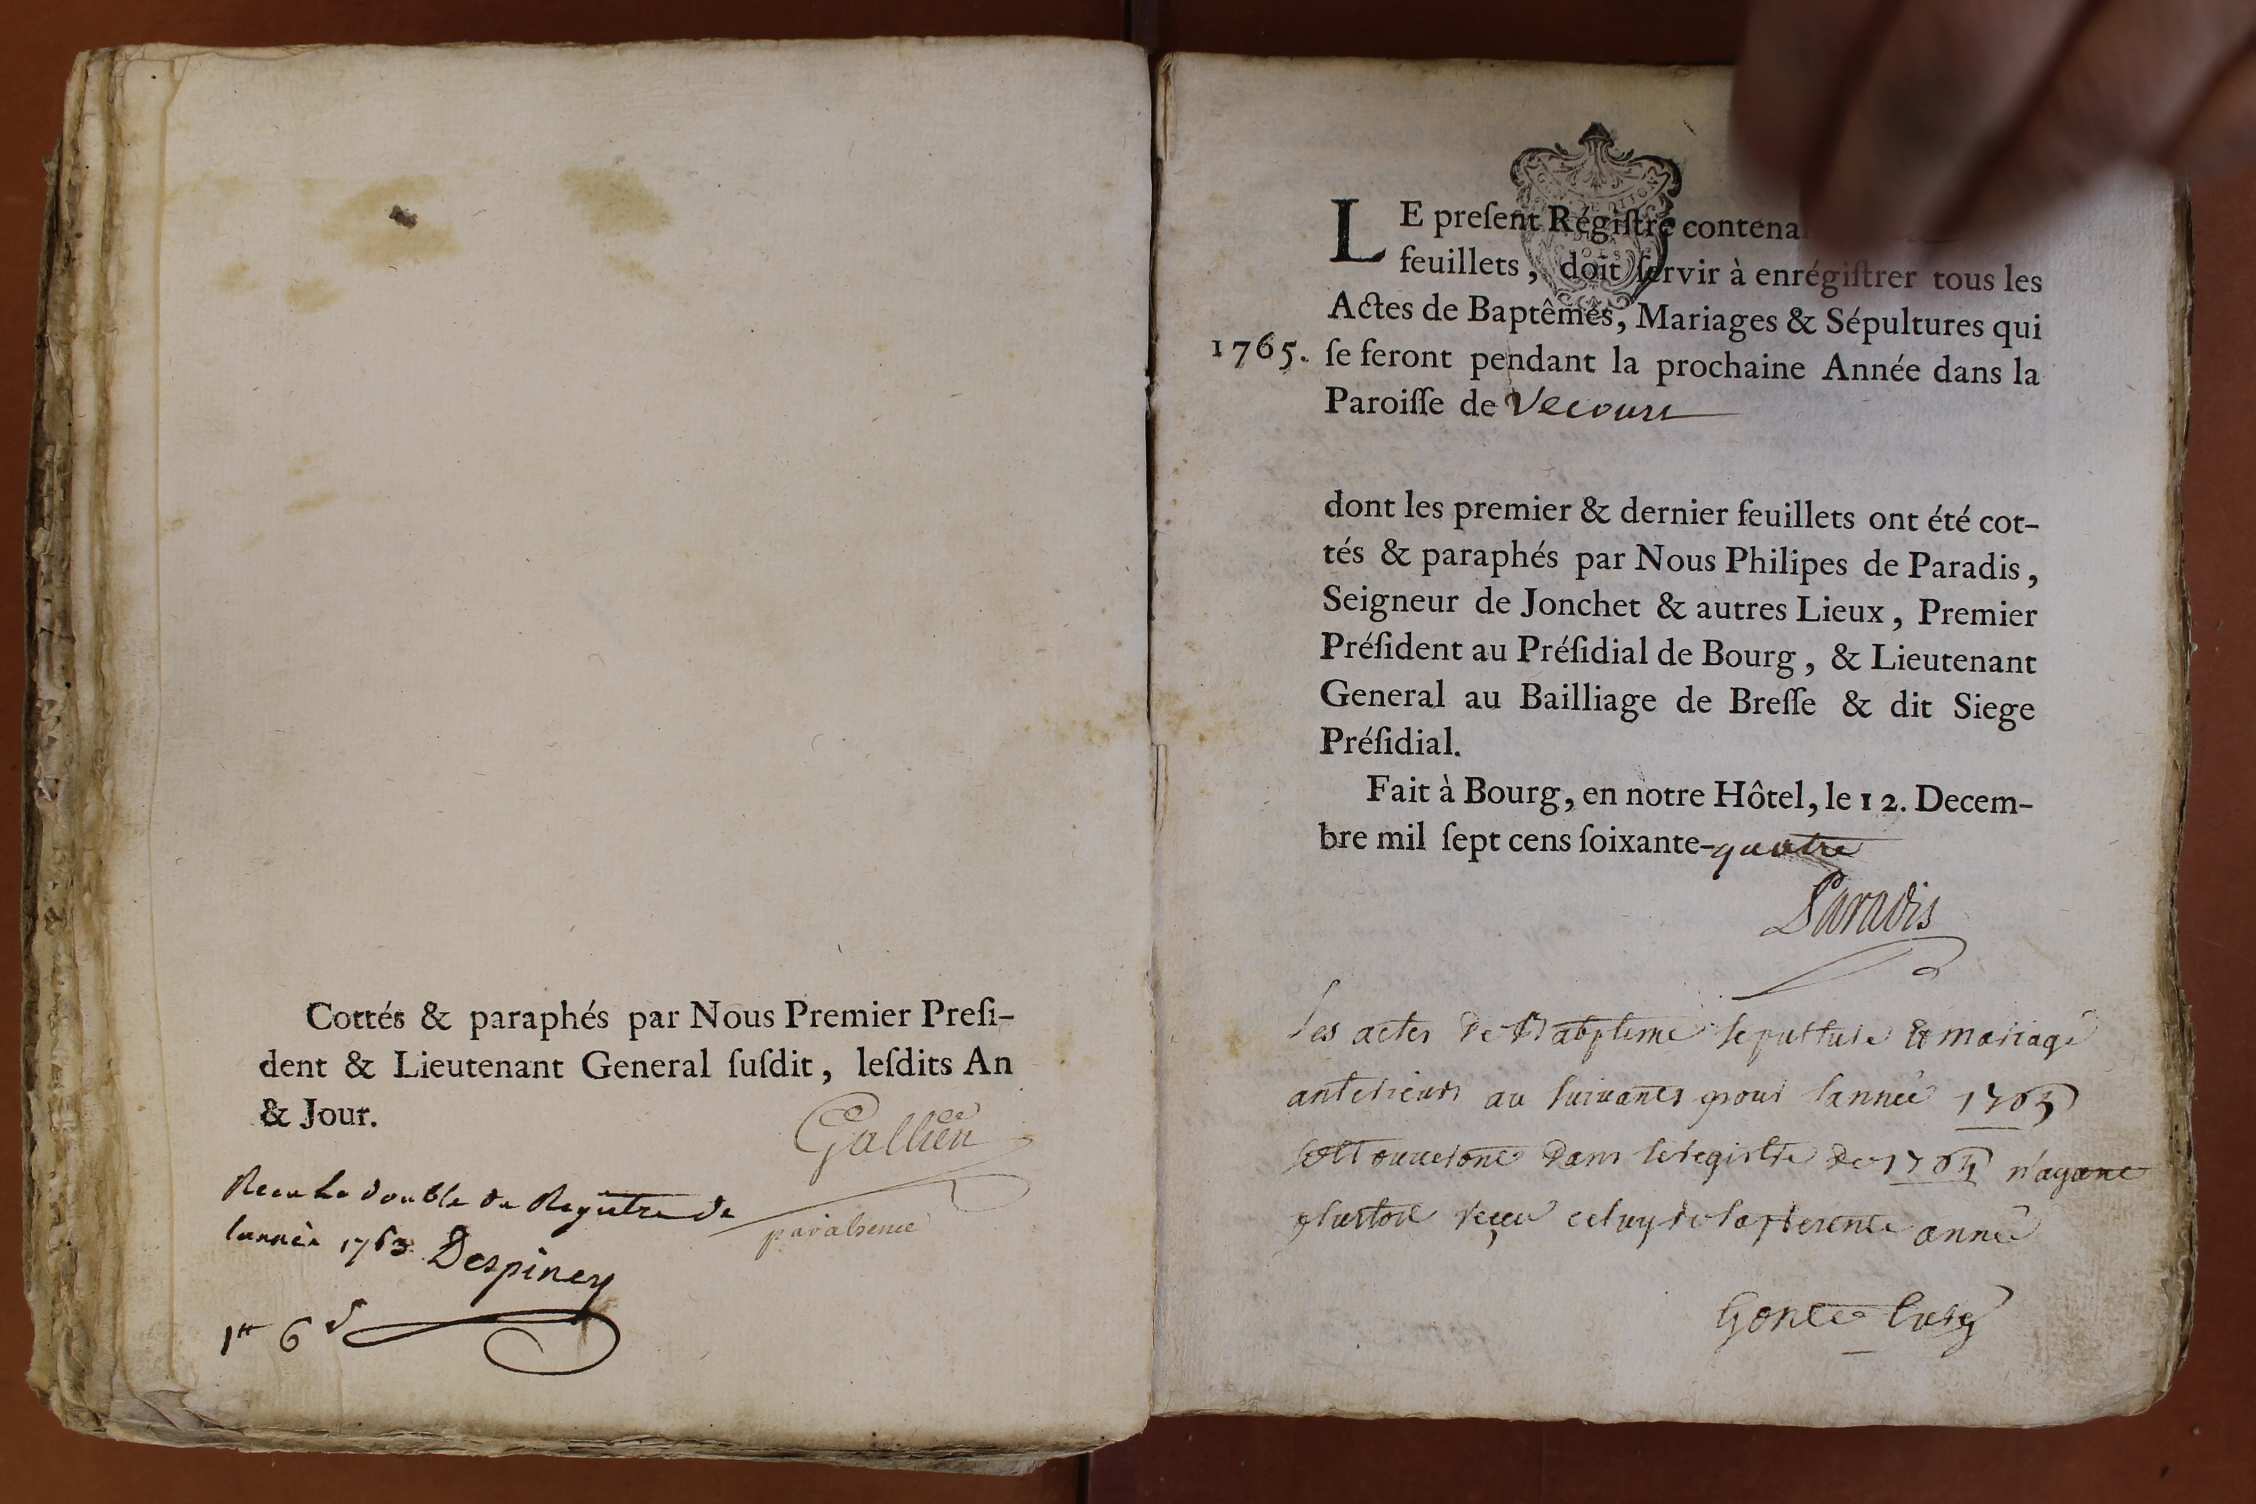 Cottés & paraphés par Nous Premier Preſi-
dent & Lieutenant General ſuſdit, leſdits An
& Jour.
Gallien
Receu Le double du Registre de
lannée 1763 Despiney
1tt 6d
LE preſent Régiſtre contena
feuillets, doit ſervir à enrégiſtrer tous les
Actes de Baptêmes, Mariages & Sépultures qui
1765. ſe feront pendant la prochaine Année dans la
Paroiſſe de Vecours
dont les premier & dernier feuillets ont été cot-
tés & paraphés par Nous Philipes de Paradis,
Seigneur de Jonchet & autres Lieux, Premier
Préſident au Préſidial de Bourg, & Lieutenant
General au Bailliage de Breſſe & dit Siege
Préſidial.
Fait à Bourg, en notre Hôtel, le 12. Decem-
bre mil ſept cens ſoixante-quatre
Paradis
Les actes de Babpteme sepulture et mariage
anterieurs au suivants pour lannée 1765
dans le registre de 1764 n'ayant
plustost reçeu celuy de la presente année
curé